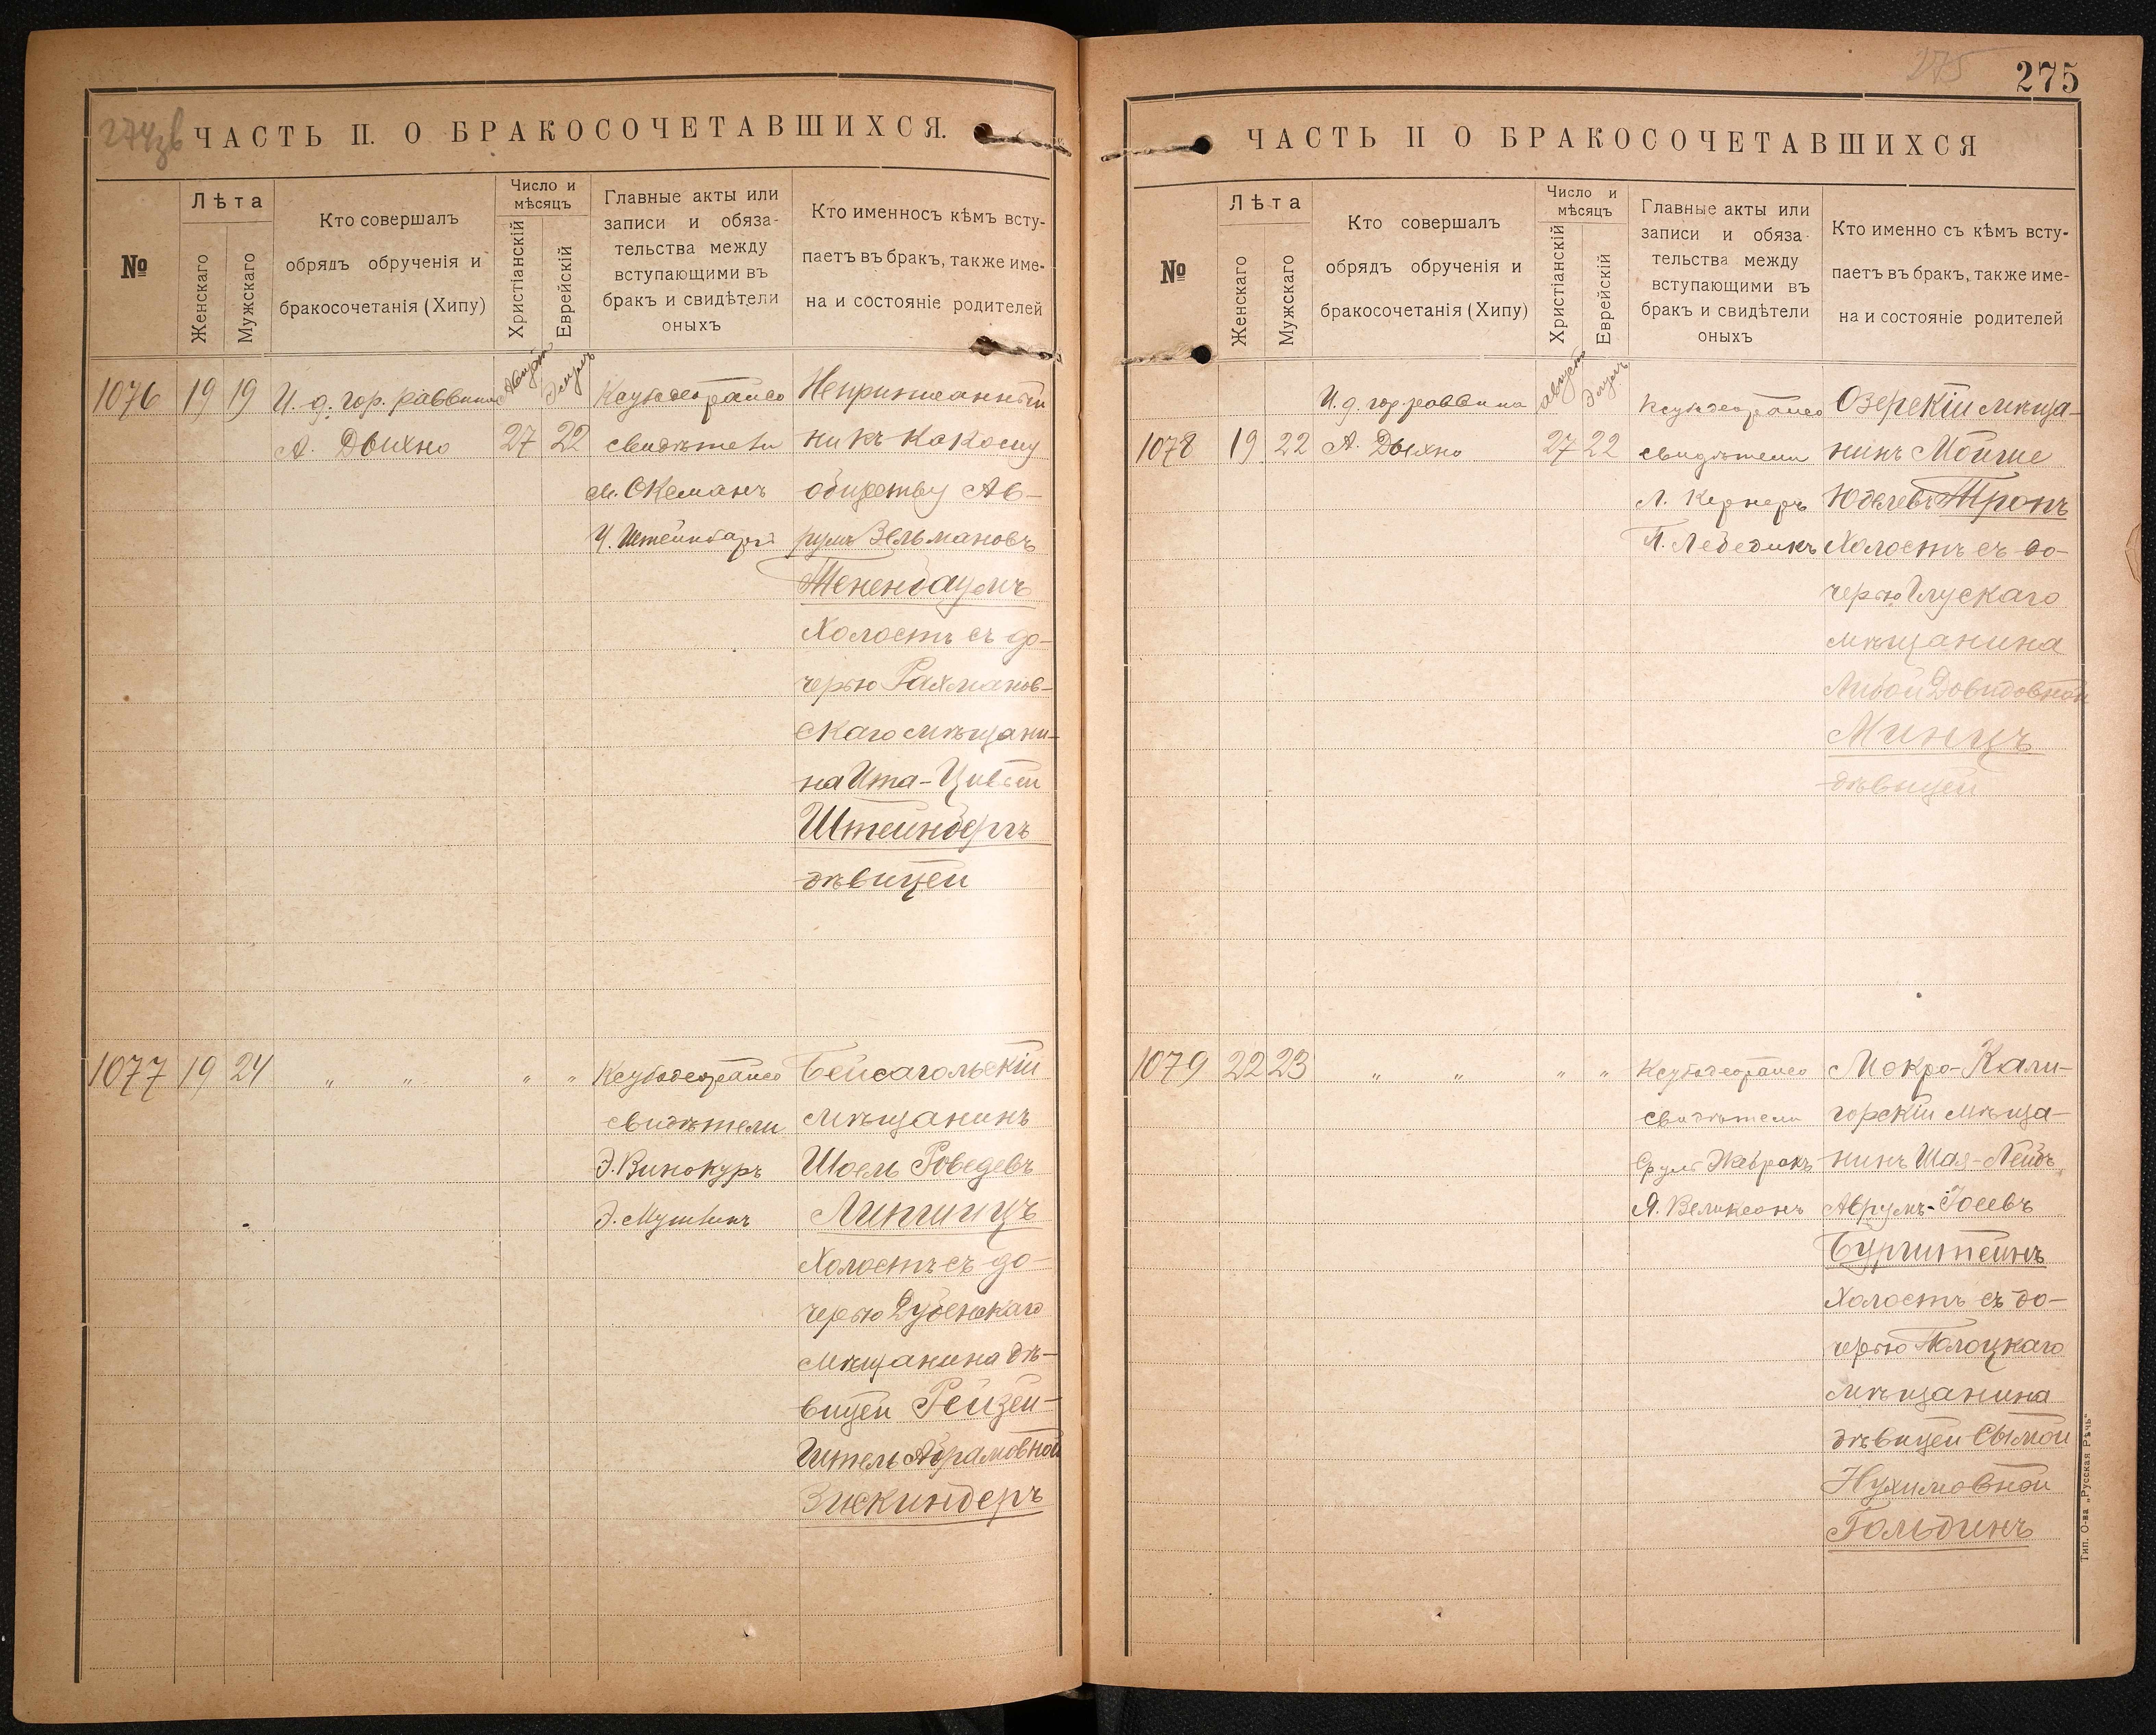 274зв
ЧАСТЬ II. О БРАКОСОЧЕТАВШИХСЯ.
№
Лѣта
Женскаго
Мужскаго
Кто совершалъ
обрядъ обрученія и
бракосочетанія (Хипу)
Число и
мѣсяцъ
Христіанскій
Еврейскій
Главные акты или
записи и обяза-
тельства между
вступающими въ
бракъ и свидѣтели
оныхъ
Кто именносъ кѣмъ всту-
паетъ въ бракъ, также име-
на и состояніе родителей
1076 19 19 И. д. гор. раввина
А. Дыхно
Августъ 27
Элулъ 22
свидѣтели
М. Оксманъ
Неприписанный
ни къ какому
обществу Ав-
румъ Зельмановъ
Тененбаумъ
Холостъ съ до-
черью Рахманов-
скаго мѣщани-
на Ита-Цивьей
Штейнбергъ
дѣвицей
1077 19 24 " " " "
свидѣтели
Э. Винокуръ
Бейсагольскій
мѣщанинъ
Шоель
Липшицъ
Холостъ съ до-
черью Дубенскаго
мѣщанина дѣ-
вицей Рейзей-
Гитель Абрамовной
Зискиндеръ
275
275
ЧАСТЬ II О БРАКОСОЧЕТАВШИХСЯ
№
Лѣта
Женскаго
Мужскаго
Кто совершалъ
обрядъ обрученія и
бракосочетанія (Хипу)
Число и
мѣсяцъ
Христіанскій
Еврейскій
Главные акты или
записи и обяза-
тельства между
вступающими въ
бракъ и свидѣтели
оныхъ
Кто именно съ кѣмъ всту-
паетъ въ бракъ, также име-
на и состояніе родителей
И. д. гор. раввина
1078 19 22 А. Дыхно
Августъ 27
Элулъ 22
свидѣтели
Л. Кернеръ
П. Лебедикъ
Озерскій мѣща-
нинъ Мойше
Юделевъ Тропъ
Холостъ съ до-
черью Глускаго
мѣщанина
Либой Довидовной
Минцъ
дѣвицей
1079 22 23 " " " "
свидѣтели
Срулъ
Я. Великсонъ
Мокро-Кали-
горскій мѣща-
нинъ Шая-Лейбъ
Аврумъ-Іосевъ
Бурштейнъ
Холостъ съ до-
черью Полоцкаго
мѣщанина
дѣвицей Сымой
Нухимовной
Гольдинъ
Тип. О-ва „Русская Рѣчь“